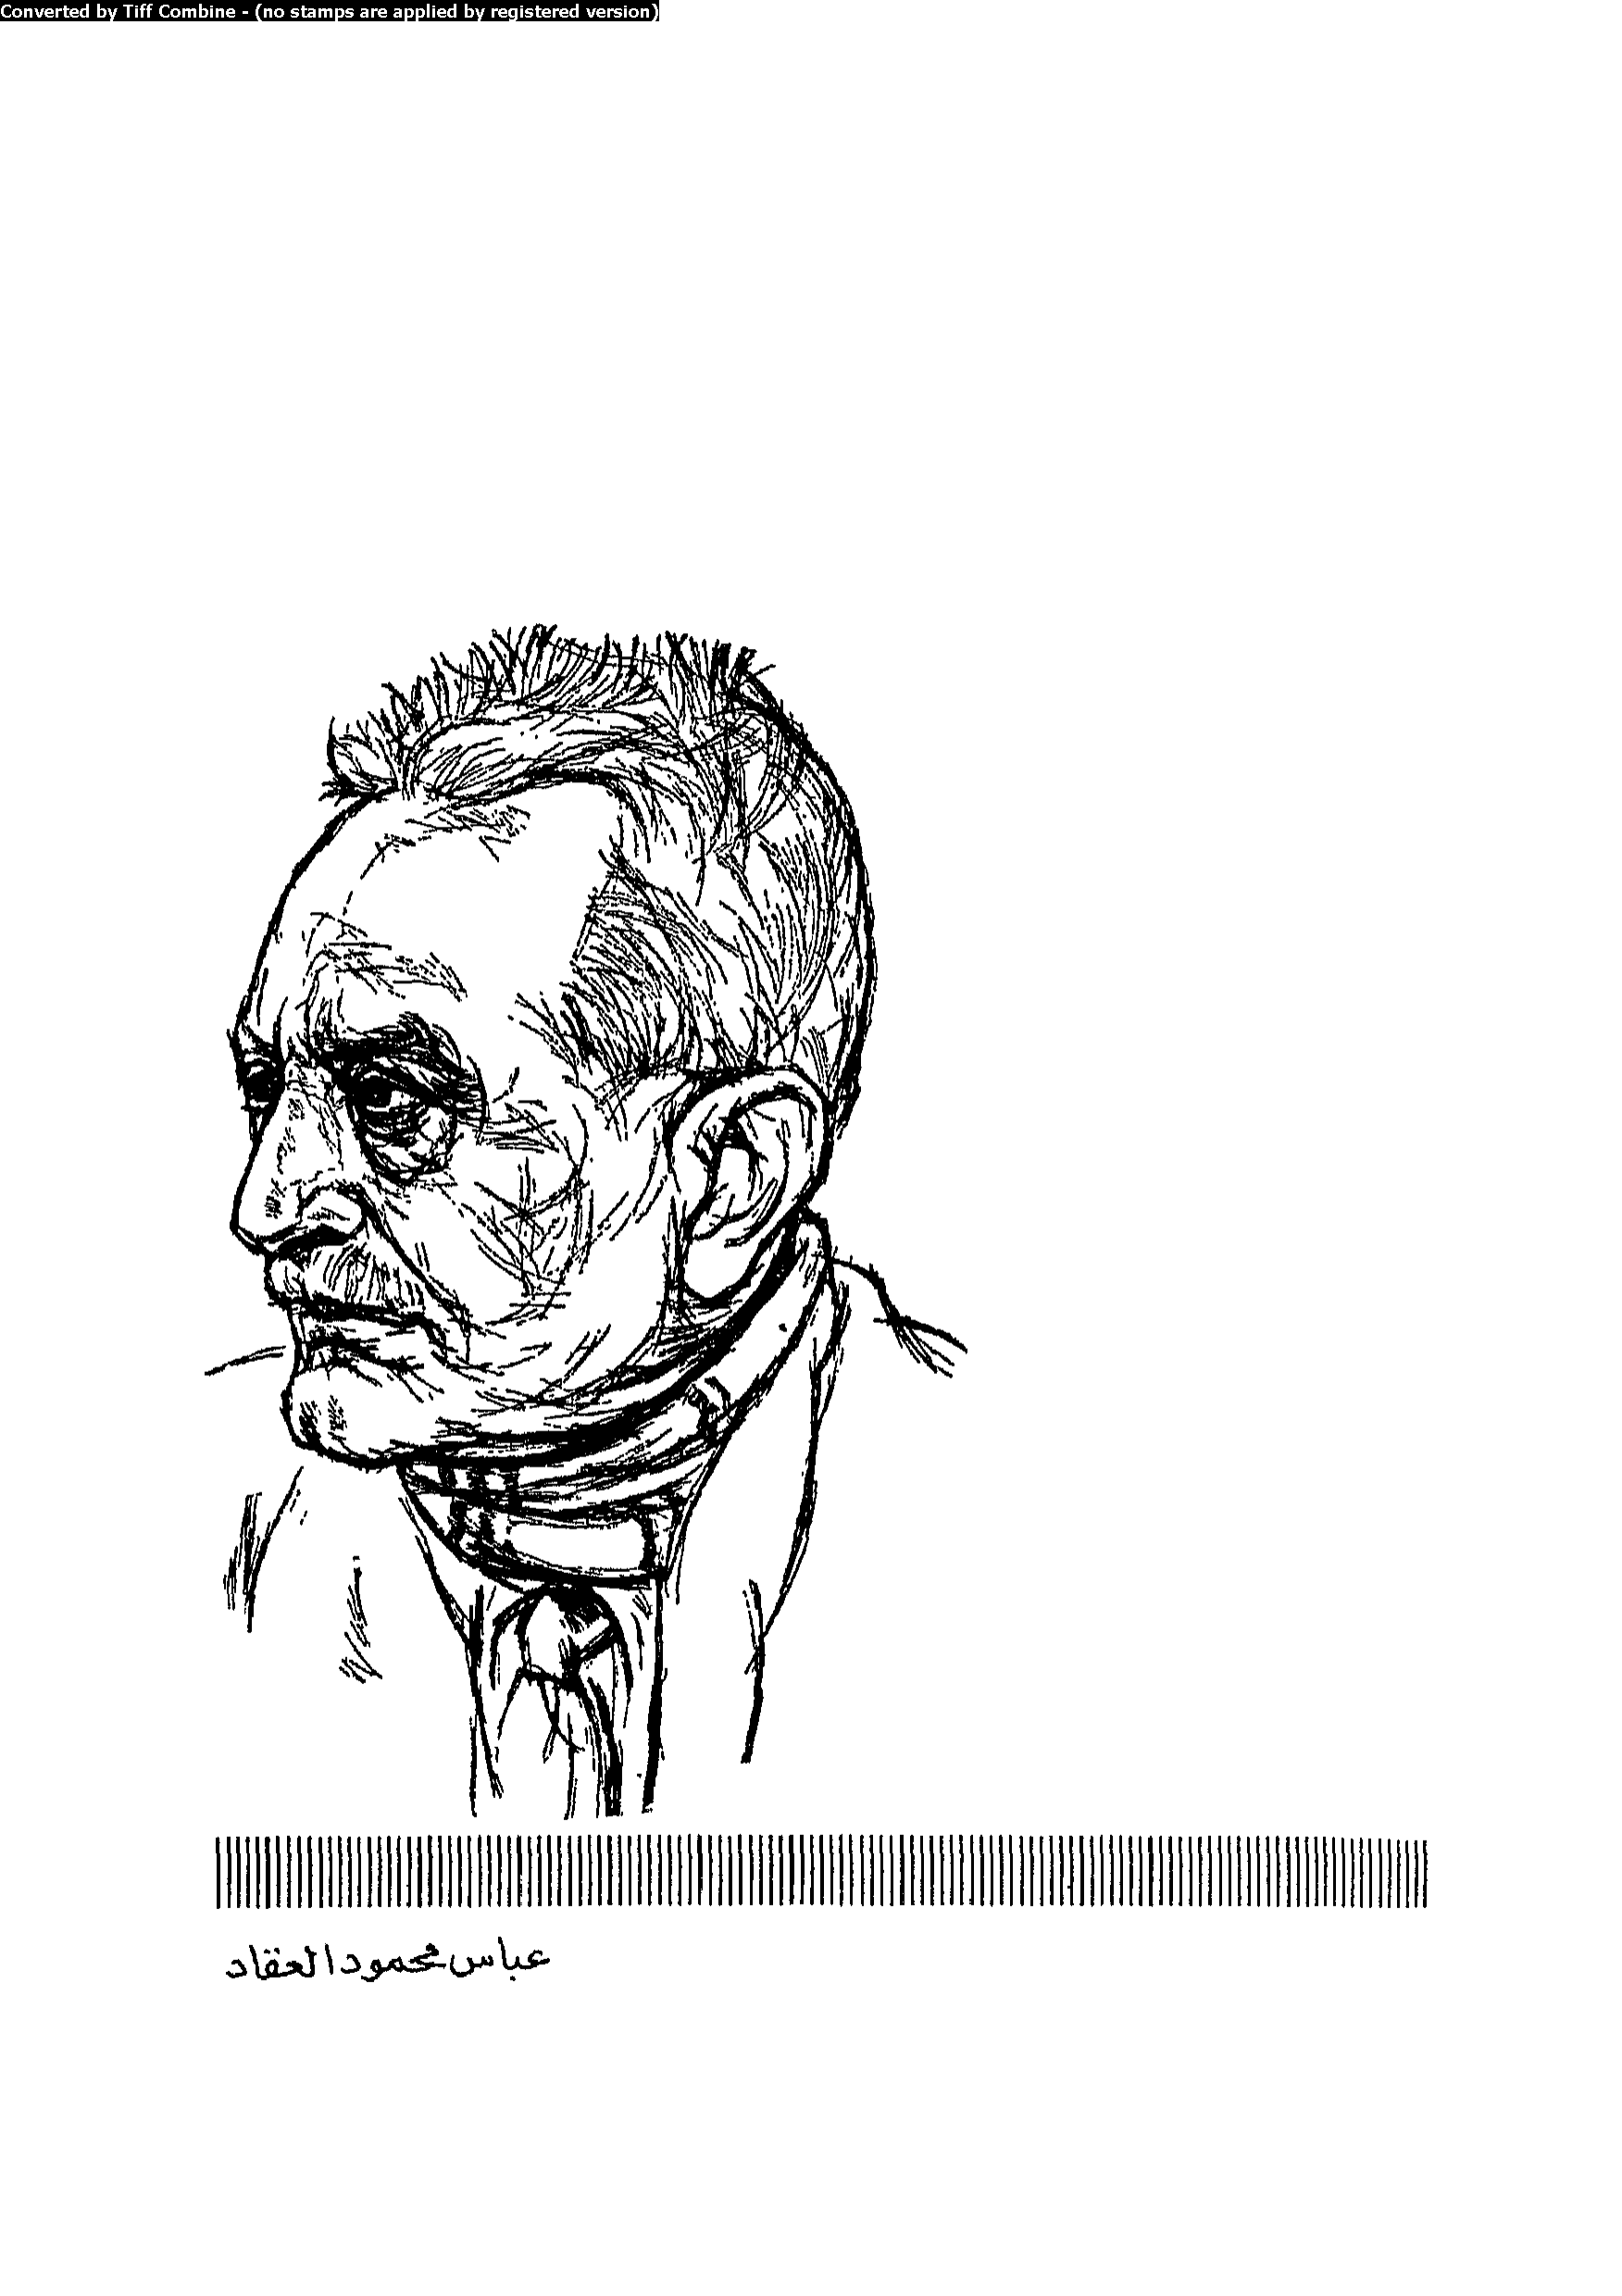 Converted by Tiff Combine - (no stamps are applied by registered version)
عباس محمود العقاد